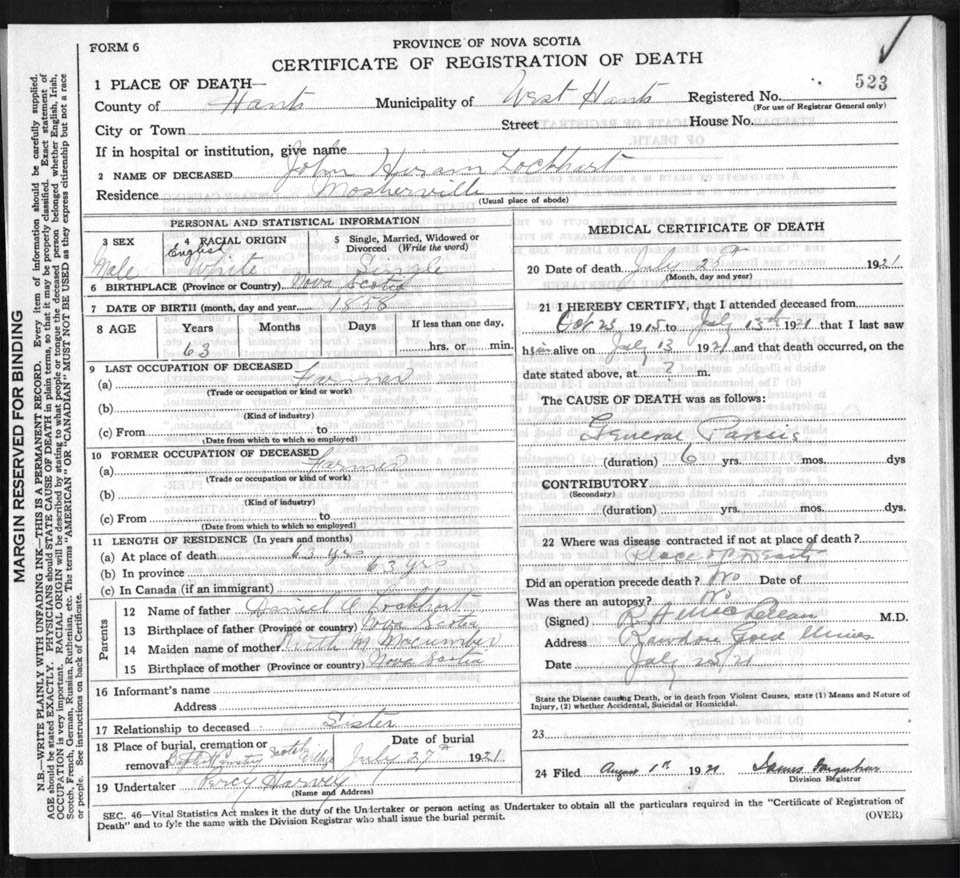 FORM 6
PROVINCE OF NOVA SCOTIA
CERTIFICATE OF REGISTRATION OF DEATH
1 PLACE OF DEATH—
County of Hants Municipality of West Hants Registered No. 523
(For use of Registrar General only)
City or Town Street House No.
If in hospital or institution, give name
2 NAME OF DECEASED John Hiram Lockhart
Residence Mosherville
(Usual place of abode)
PERSONAL AND STATISTICAL INFORMATION
3 SEX 4 RACIAL ORIGIN 5 Single, Married, Widowed or Divorced (Write the word)
Male English White Single
6 BIRTHPLACE (Province or Country) Nova Scotia
7 DATE OF BIRTH (month, day and year) 1858
8 AGE Years Months Days If less than one day,
63 hrs. or min.
9 LAST OCCUPATION OF DECEASED
(a) Farmer
(Trade or occupation or kind of work)
(b)
(Kind of industry)
(c) From to
(Date from which to which so employed)
10 FORMER OCCUPATION OF DECEASED
(a) Farmer
(Trade or occupation or kind of work)
(b)
(Kind of industry)
(c) From to
(Date from which to which so employed)
11 LENGTH OF RESIDENCE (In years and months)
(a) At place of death 63 yrs
(b) In province 63 yrs
(c) In Canada (if an immigrant)
Parents
12 Name of father Daniel O Lockhart
13 Birthplace of father (Province or country) Nova Scotia
14 Maiden name of mother M Macumber
15 Birthplace of mother (Province or country) Nova Scotia
16 Informant's name
Address
17 Relationship to deceased Sister
18 Place of burial, cremation or removal Scotch Village
Date of burial July 27th 1921
19 Undertaker Percy Harvey
(Name and Address)
MEDICAL CERTIFICATE OF DEATH
20 Date of death July 25th 1921
(Month, day and year)
21 I HEREBY CERTIFY, that I attended deceased from
Oct 23 1915 to July 13th 1921 that I last saw
him alive on July 13 1921 and that death occurred, on the
date stated above, at ? m.
The CAUSE OF DEATH was as follows:
General Paresis
(duration) 6 yrs. mos. dys
CONTRIBUTORY
(Secondary)
(duration) yrs. mos. dys.
22 Where was disease contracted if not at place of death?
Place of Death
Did an operation precede death? No Date of
Was there an autopsy? No
(Signed) McLean M.D.
Address Rawdon Gold Mines
Date July 25/21
State the Disease causing Death, or in death from Violent Causes, state (1) Means and Nature of
Injury, (2) whether Accidental, Suicidal or Homicidal.
23
24 Filed August 1st 1921 James
Division Registrar
SEC. 46—Vital Statistics Act makes it the duty of the Undertaker or person acting as Undertaker to obtain all the particulars required in the "Certificate of Registration of
Death" and to fyle the same with the Division Registrar who shall issue the burial permit.
(OVER)
MARGIN RESERVED FOR BINDING
N.B.—WRITE PLAINLY WITH UNFADING INK—THIS IS A PERMANENT RECORD. Every item of information should be carefully supplied.
AGE should be stated EXACTLY. PHYSICIANS should STATE CAUSE OF DEATH in plain terms, so that it may be properly classified. Exact statement of
OCCUPATION is very important. RACIAL ORIGIN will be described by stating to what people or tongue the deceased person belonged whether English, Irish,
Scotch, French, German, Russian, Ruthenian, etc. The terms "AMERICAN" OR "CANADIAN" MUST NOT BE USED as they express citizenship but not a race
or people. See instructions on back of Certificate.